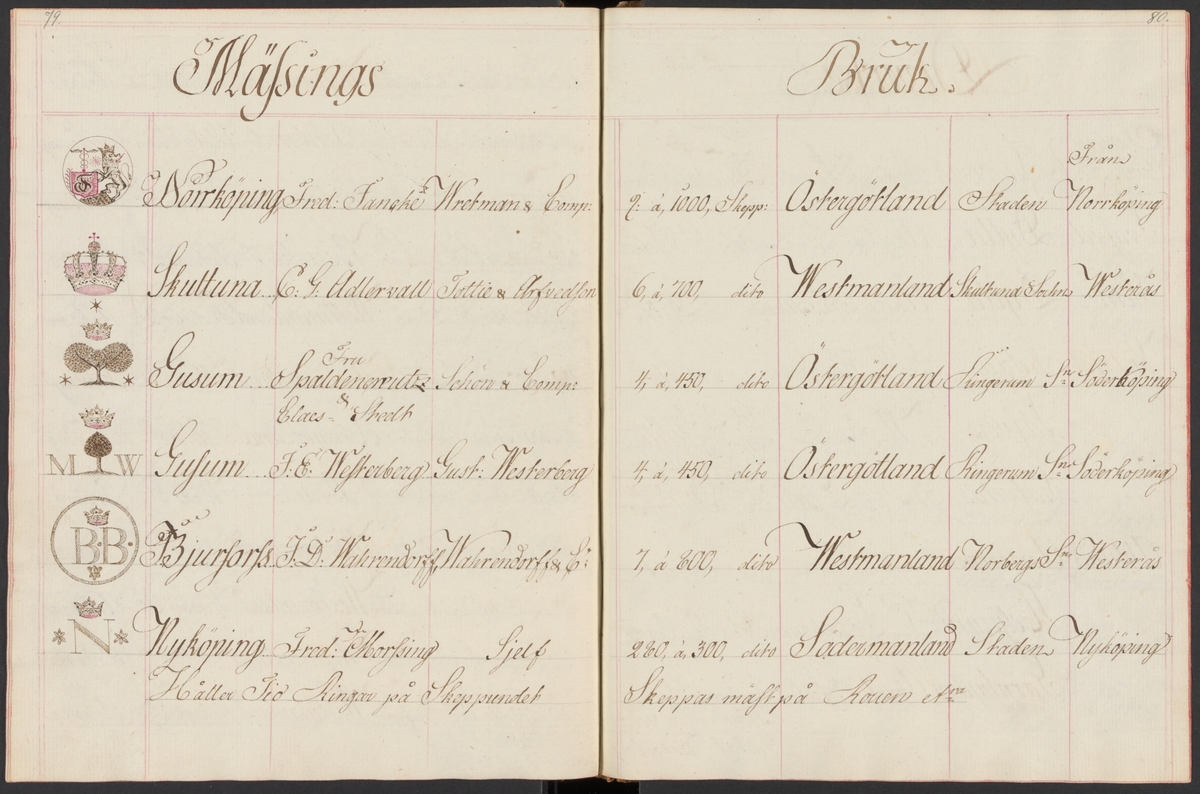 79.
80.
Mässings Bruk.
Från
Norrköping Fred: Fangke Wretman & Comp: 9: á, 1000, Skepp: Östergötland Staden Norrköping
Skultuna C: G: Adlervall Tottie & Arfvedson 6, á, 700, dito Westmanland Skultuna Sochn Westerås
Fru
Gusum Spaldencreutz Schön & Comp: 4, á, 450, dito Östergötland Ringerum Sn Söderköping
Claes & Stedt
M W
Gusum J. E. Westerberg Gust: Westerberg 4, á, 450, dito Östergötland Ringerum Sn Söderköping
B·B·
Bjurforss J. D. Wahrendorff Wahrendorff & C: 7, á 800, dito Westmanland Norbergs Sn Westerås
N
Nyköping Fred: Morssing Sjelf 280. á, 300, dito Södermanland Staden Nyköping
Håller Tio Ringar på Skeppundet Skeppas mäst på Rouen etra